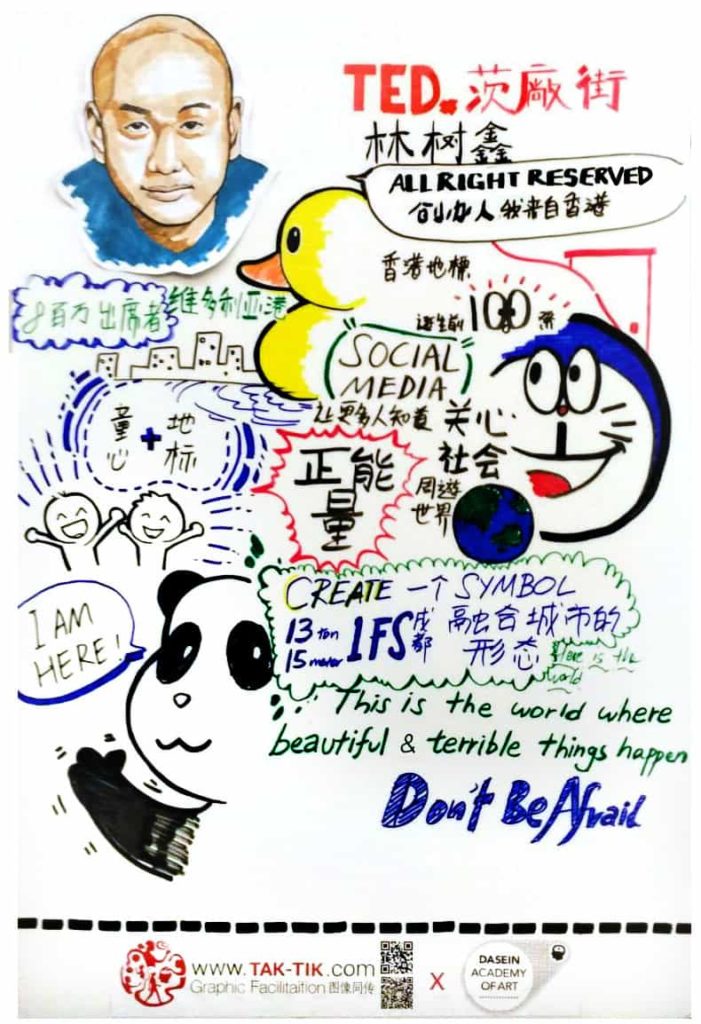 TED. 茨厰街
林树鑫
ALL RIGHT RESERVED
创办人 我来自香港
香港地標
8百万出席者
維多利亚港
誕生前 100 祭
SOCIAL
MEDIA
让更多人知道
关心
社会
童心 + 地标
正能量
周遊
世界
I AM
HERE!
CREATE 一个 SYMBOL
13 ton
15 meter
IFS 成都
融合城市的
形态
Here is the
world
This is the world where
beautiful & terrible things happen
Don't Be Afraid
www.TAK-TIK.com
Graphic Facilitaition 图像同传
X
DASEIN
ACADEMY
OF ART